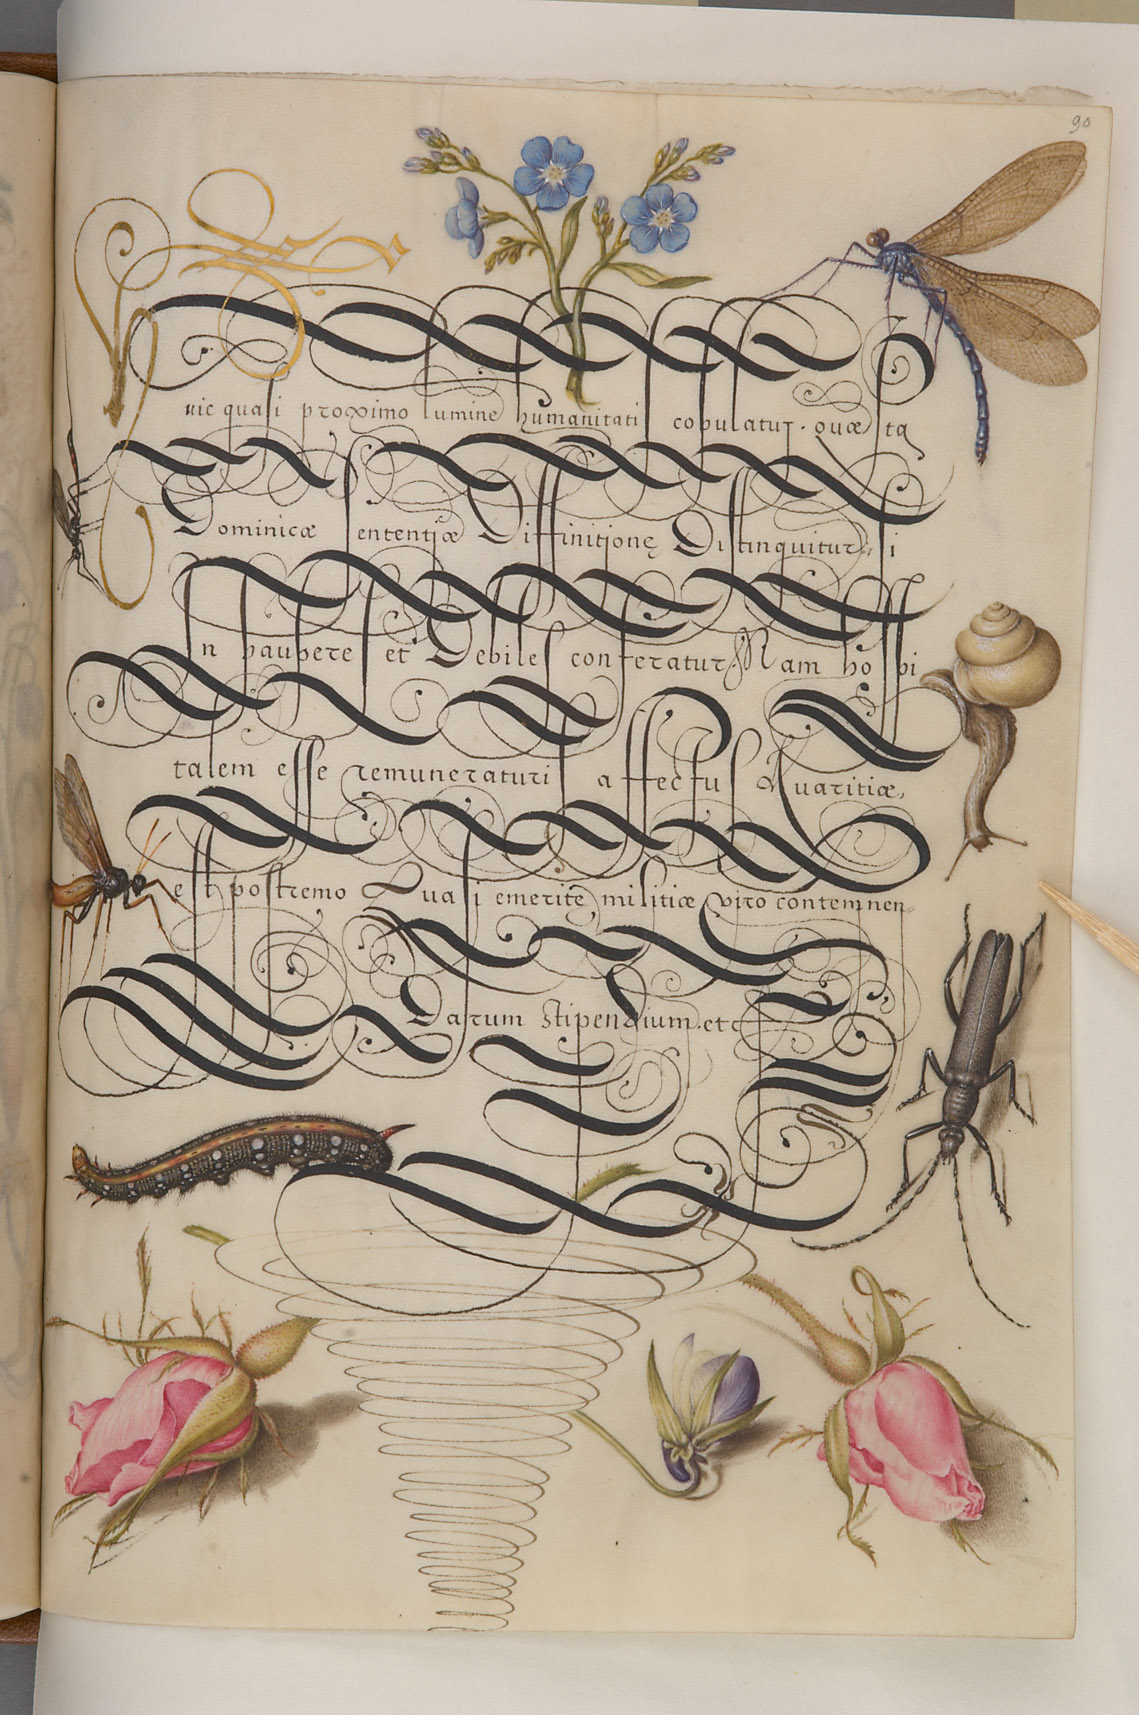 90
Huic quasi proximo lumine humanitatis copulatur. quæ ita
Dominicæ sententiæ Diffinitione Distinquitur, si
In pauperes et Debiles conferatur. Nam hospi
talem esse remuneraturis affectus Avaritiæ,
est postremo Quasi emerite militiæ viro contemnen-
Darum Stipendium. etc